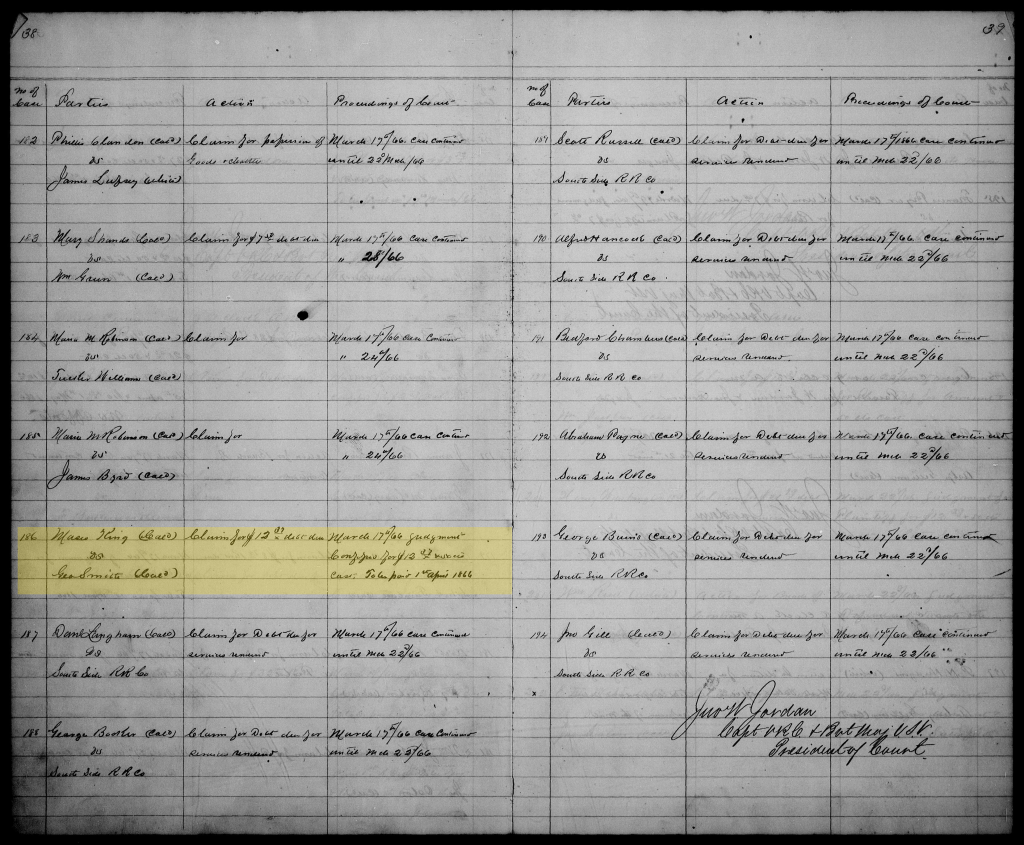 38
39
No of Case Parties Action Proceedings of Court
182 Phillis (Cold) Claim for of March 17th/66 case continued
vs Goods until 22d Mch/66
James (White)
183 Mary Shands (Cold) Claim for $7 debt due March 17th/66 case continued
vs " 28/66
Wm Green (Cold)
184 Maria M Robinson (Cold) Claim for March 17th/66 case continued
vs " 24th/66
Williams (Cold)
185 Maria M Robinson (Cold) Claim for March 17th/66 case continued
vs " 24th/66
James Byrd (Cold)
186 King (Cold) Claim for $12 debt due March 17th/66 Judgment
vs for $12
Geo Smith (Cold) case. To be paid 1st April 1866
187 Langham (Cold) Claim for Debt due for March 17th/66 case continued
vs services rendered until Mch 22d/66
South Side RR Co
188 George (Cold) Claim for Debt due for March 17th/66 case continued
vs services rendered until Mch 22d/66
South Side RR Co
No of Case Parties Action Proceedings of Court
189 Scott Russell (Cold) Claim for Debt due for March 17th/1866 case continued
vs services rendered until Mch 22d/66
South Side RR Co
190 Alfred Hancock (Cold) Claim for Debt due for March 17th/66 case continued
vs services rendered until Mch 22d/66
South Side RR Co
191 Bedford Chambers (Cold) Claim for Debt due for March 17th/66 case continued
vs services rendered until Mch 22d/66
South Side RR Co
192 Abraham Payne (Cold) Claim for Debt due for March 17th/66 case continued
vs services rendered until Mch 22d/66
South Side RR Co
193 George (Cold) Claim for Debt due for March 17th/66 case continued
vs services rendered until Mch 22d/66
South Side RR Co
194 Jno Gill (Cold) Claim for Debt due for March 17th/66 case continued
vs services rendered until Mch 22/66
South Side RR Co
Jno W Jordan
Capt VRC & Bvt Maj USV
President of Court